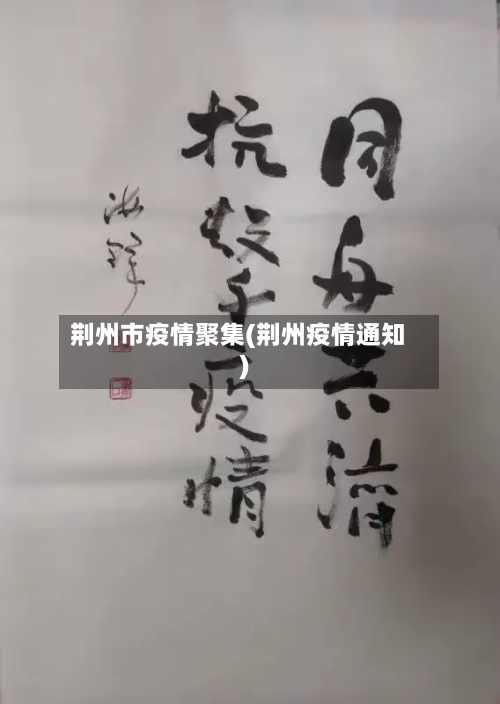 同舟共濟
抗擊疫情
荆州市疫情聚集(荆州疫情通知
)